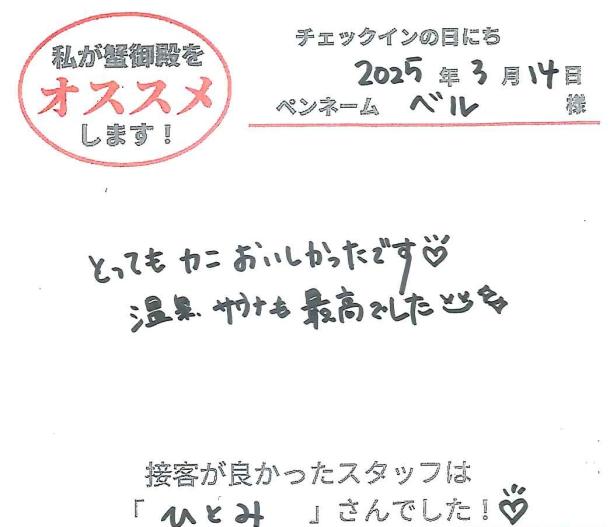 私が蟹御殿を
オススメ
します！
チェックインの日にち
2025年3月14日
ペンネーム ベル 様
とっても カニ おいしかったです♡
温泉 サウナも 最高でした
接客が良かったスタッフは
「 ひとみ 」さんでした！♡